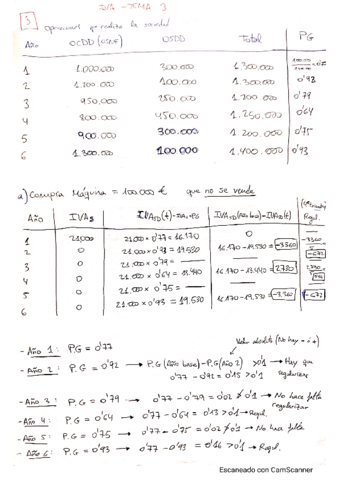 IVA - TEMA 3
3 operaciones que realiza la sociedad
Año OCDD (OSNE) OSDD Total PG
1 1.000.000 300.000 1.300.000 0'77
2 1.200.000 100.000 1.300.000 0'92
3 950.000 250.000 1.200.000 0'79
4 800.000 450.000 1.250.000 0'64
5 900.000 300.000 1.200.000 0'75
6 1.300.000 100.000 1.400.000 0'93
a) Compra Máquina = 100.000 € que no se vende
AÑO IVAS IVASD(t) = IVAs · PG IVASD (año base) - IVASD(t) Regul.
1 21.000 21.000 x 0'77 = 16.170 0
2 0 21.000 x 0'92 = 19.530 16.170 - 19.530 = -3360 -3360 / 5 = -672
3 0 21.000 x 0'79 = 0
4 0 21.000 x 0'64 = 13.440 16.170 - 13.440 = 2730 2730
5 0 21.000 x 0'75 =
6 0 21.000 x 0'93 = 19.530 16.170 - 19.530 = -3.360 -672
Valor absoluto (No hay - o +)
- Año 1: P.G = 0'77
- Año 2: P.G = 0'92 → P.G (Año base) - P.G (Año 2) > 0'1 → Hay que regularizar
0'77 - 0'92 = 0'15 > 0'1
- Año 3: P.G = 0'79 → 0'77 - 0'79 = 0'02 ≯ 0'1 → No hace falta regularizar
- Año 4: P.G = 0'64 → 0'77 - 0'64 = 0'13 > 0'1 → Regul.
- Año 5: P.G = 0'75 → 0'77 - 0'75 = 0'02 ≯ 0'1 → No hace falta
- Año 6: P.G = 0'93 → 0'77 - 0'93 = 0'16 > 0'1 → Regul.
Escaneado con CamScanner